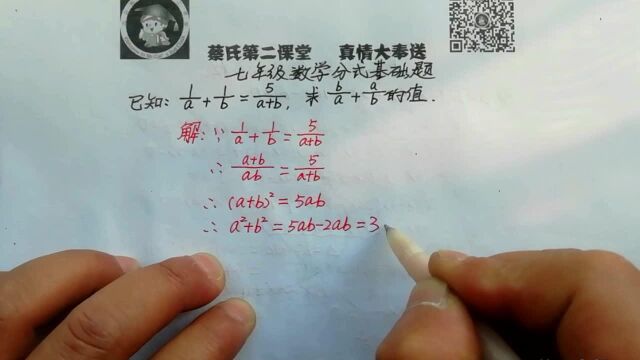 蔡氏第二课堂 真情大奉送
七年级数学分式基础题
已知: 1/a + 1/b = 5/(a+b), 求 b/a + a/b 的值.
解: ∵ 1/a + 1/b = 5/(a+b)
∴ (a+b)/(ab) = 5/(a+b)
∴ (a+b)² = 5ab
∴ a²+b² = 5ab-2ab = 3